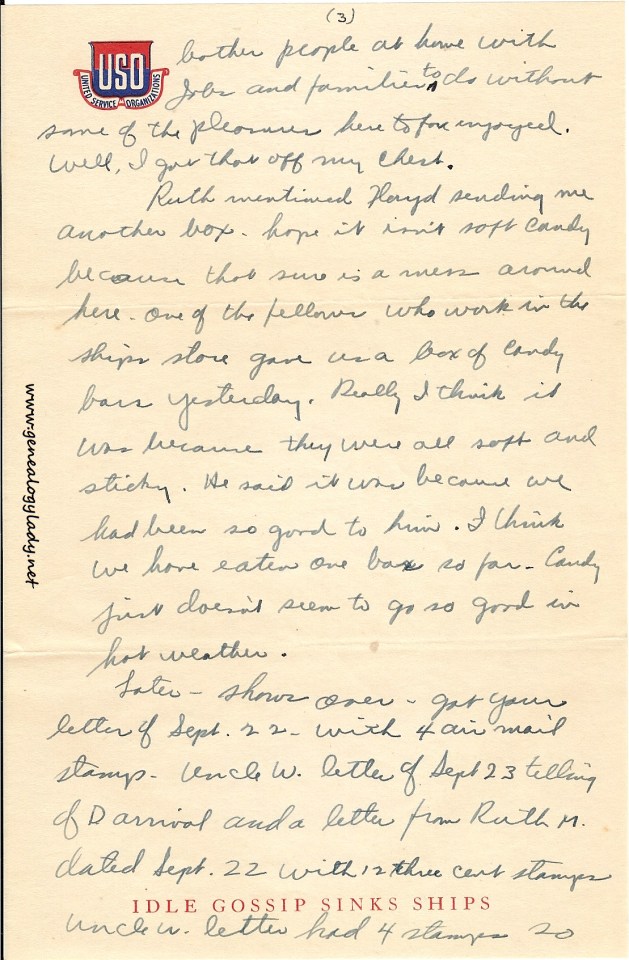 (3)
USO
UNITED SERVICE ORGANIZATIONS
bother people at home with
Jobs and families to do without
some of the pleasures here to fore injoyed.
Well, I got that off my chest.
Ruth mentioned Floyd sending me
another box - hope it isn't soft candy
because that sure is a mess around
here - one of the fellows who work in the
ships store gave us a box of candy
bars yesterday. Really I think it
was because they were all soft and
sticky. He said it was because we
had been so good to him. I think
we have eaten one bar so far - Candy
just doesn't seem to go so good in
hot weather.
Later - shows over - got your
letter of Sept. 22 - with 4 air mail
stamps - Uncle W. letter of Sept 23 telling
of D arrival and a letter from Ruth M.
dated Sept. 22 with 12 three cent stamps
Uncle W. letter had 4 stamps so
IDLE GOSSIP SINKS SHIPS
www.genealogylady.net